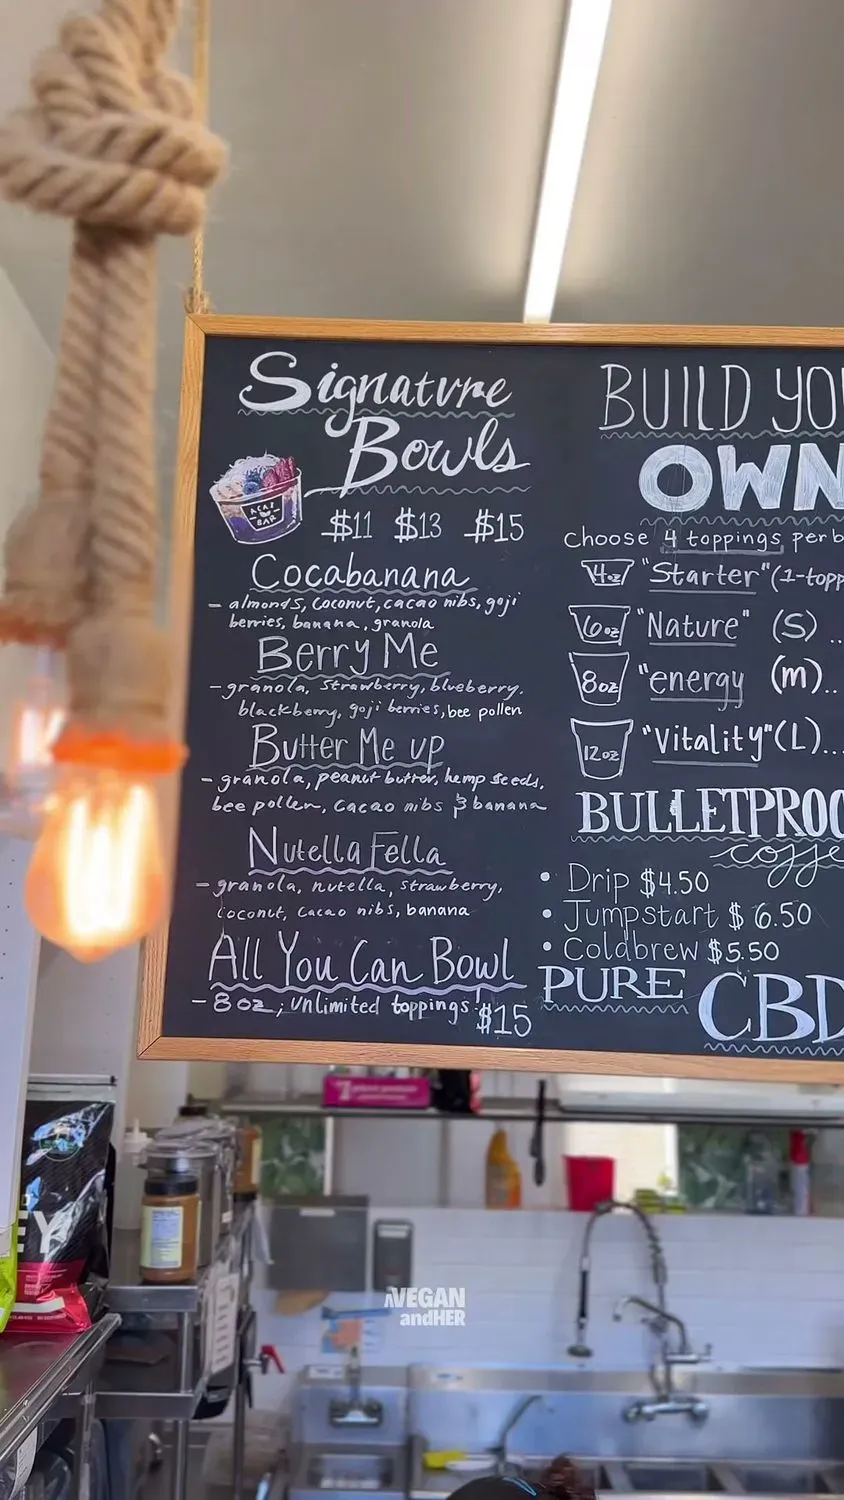 Signature
Bowls
ACAI
BAR
$11 $13 $15
Cocabanana
- almonds, coconut, cacao nibs, goji
berries, banana, granola
Berry Me
- granola, strawberry, blueberry.
blackberry, goji berries, bee pollen
Butter Me up
- granola, peanut butter, hemp seeds,
bee pollen, cacao nibs & banana
Nutella Fella
- granola, nutella, strawberry,
coconut, cacao nibs, banana
All You Can Bowl
- 8 oz; unlimited toppings
$15
BUILD YO
OWN
Choose 4 toppings per b
4oz "Starter" (1-topp
6oz "Nature" (S) ..
8oz "energy (m)..
12oz "Vitality" (L)...
BULLETPROO
coffe
• Drip $4.50
• Jumpstart $6.50
• Coldbrew $5.50
PURE CBD
VEGAN
andHER